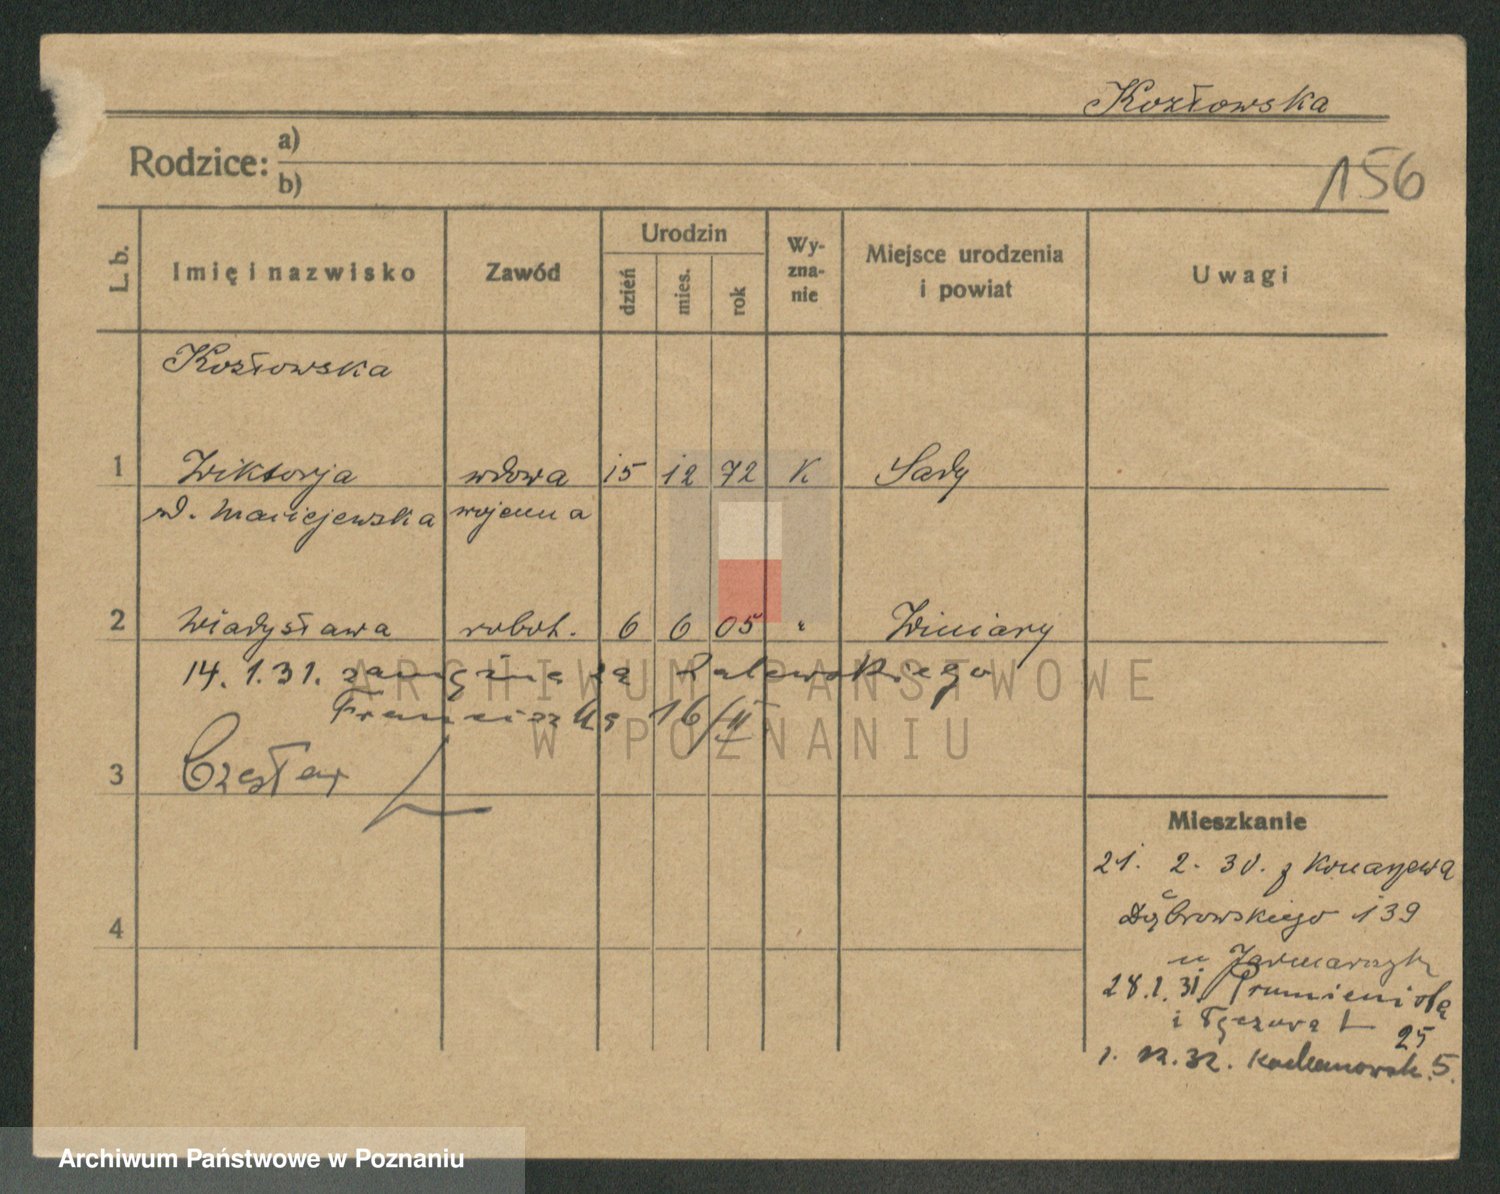 Kozłowska
Rodzice: a)
b)
156
L. b. Imię i nazwisko Zawód Urodzin dzień mies. rok Wy-zna-nie Miejsce urodzenia i powiat Uwagi
Kozłowska
1 Wiktorja wdowa 15 12 72 K Sady
Maciejewska wojenna
2 Władysława robot. 6 6 05 " Winiary
14. 1. 31. zamężna za Zalewskiego
Franciszka 16/II
3 Czesław
4
Mieszkanie
21. 2. 30. z Konarzewa
Dąbrowskiego 139
u
28. 1. 31. Promienista
i 25
1. 12. 32. Kochanowsk. 5.
ARCHIWUM PAŃSTWOWE
W POZNANIU
Archiwum Państwowe w Poznaniu